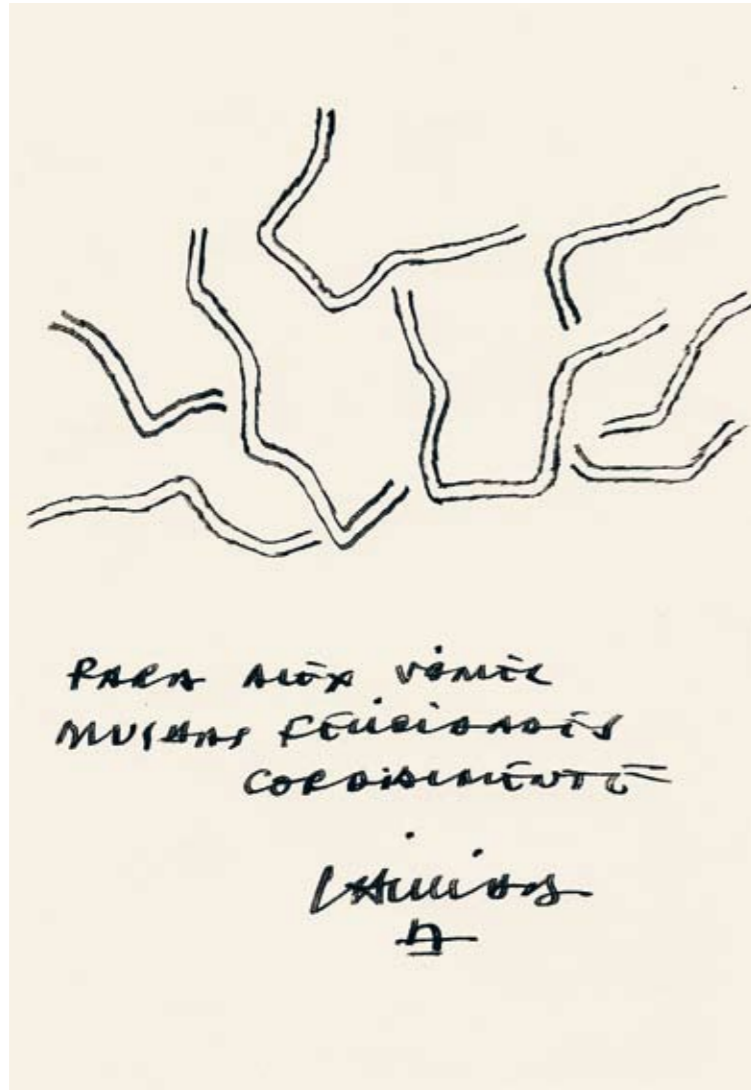 PARA ALEX VÖMEL
MUCHAS FELICIDADES
CORDIALMENTE
CHILLIDA